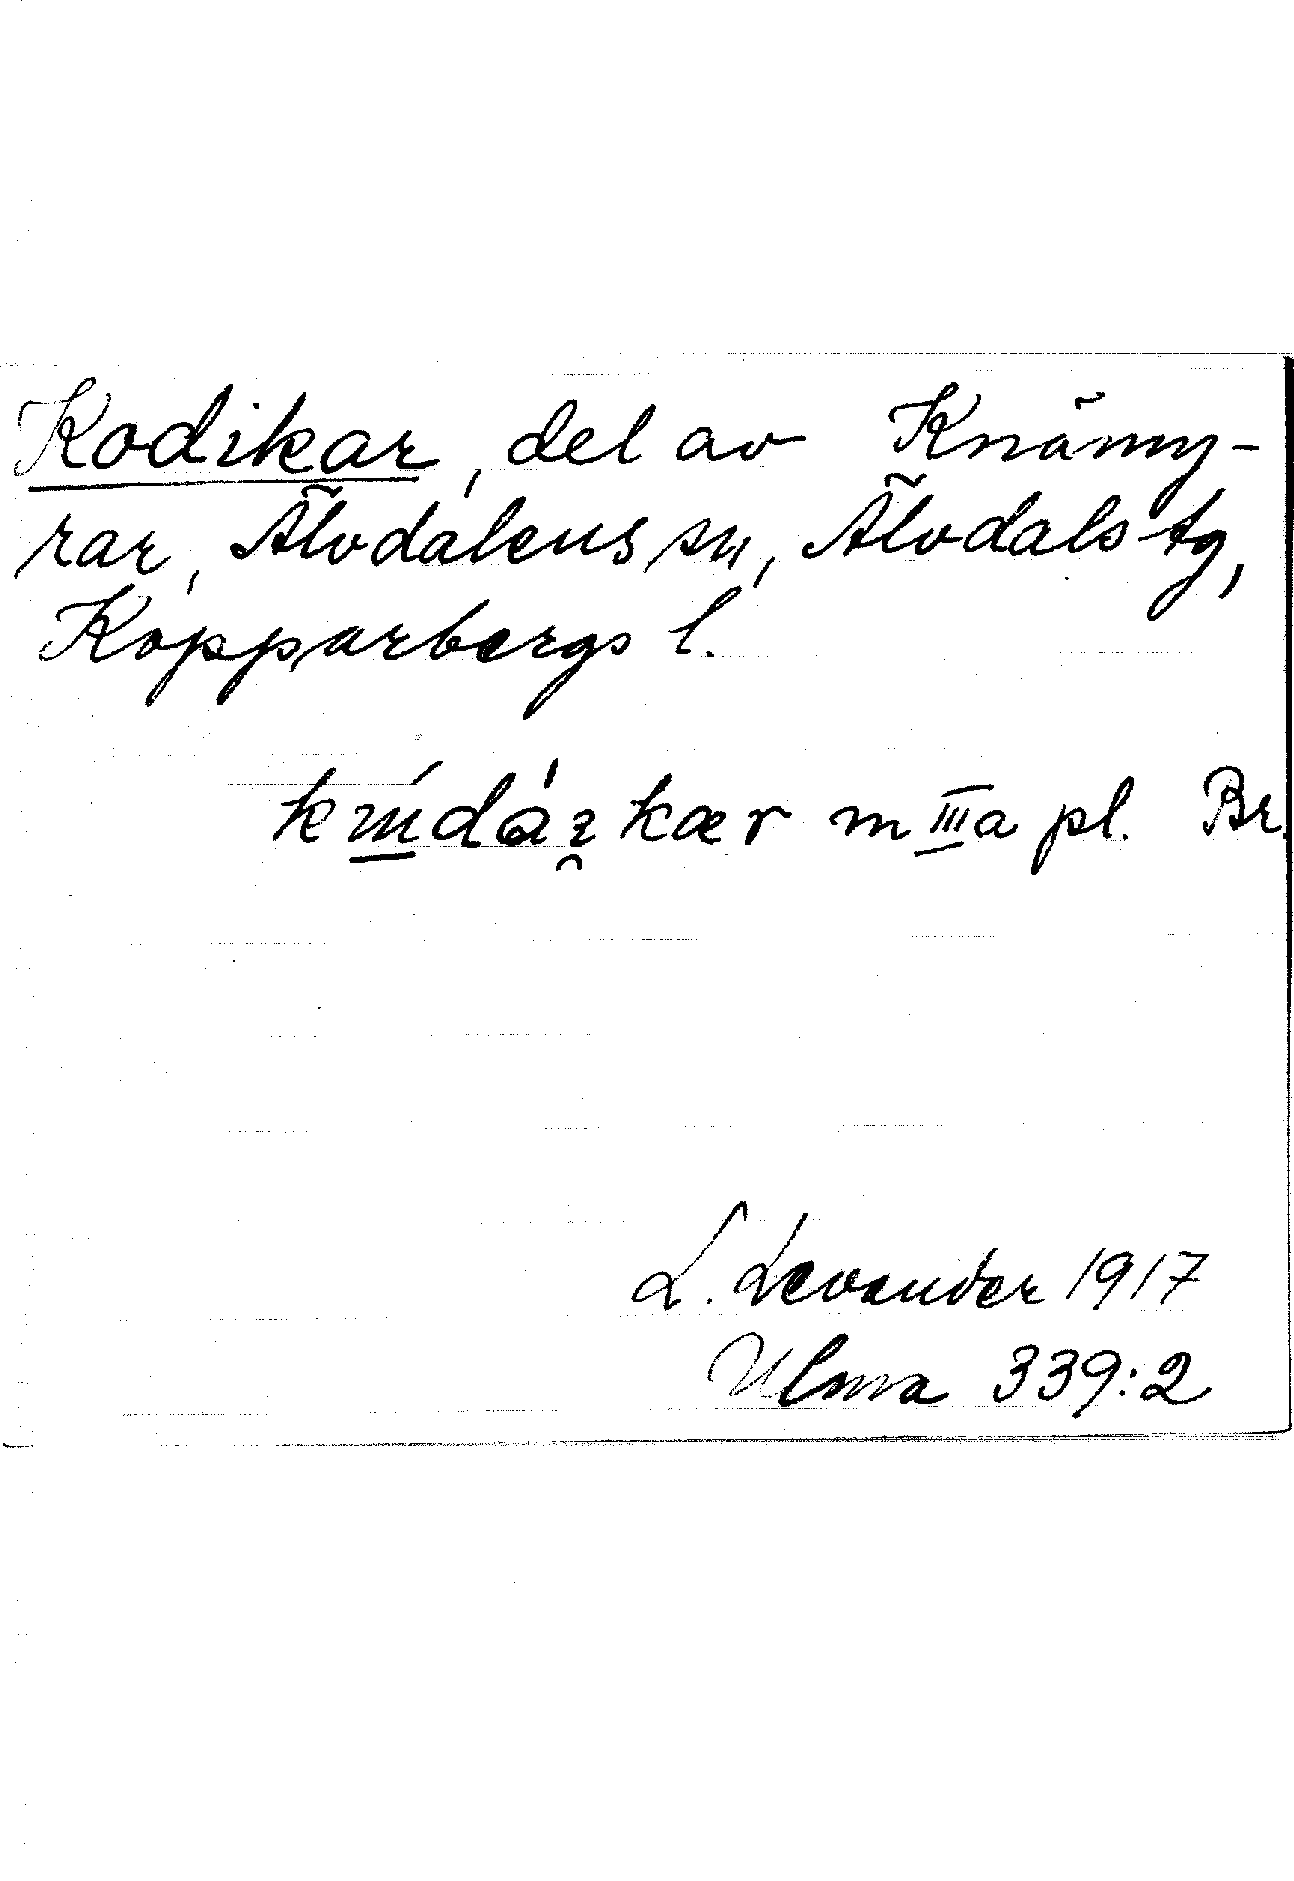 Kodikar, del av Knämy-
rar, Älvdalens sn, Älvdals tg,
Kopparbergs l.
m III a pl. Br.
L. Levander 1917
Ulma 339:2